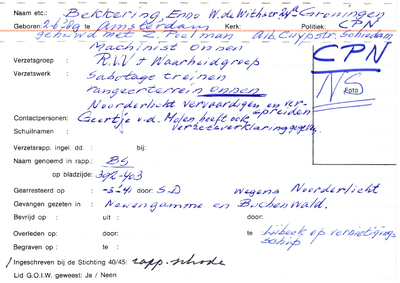 Naam etc.: Bekkering, Enno W. de Withstr 24a Groningen
Geboren: 2-6-'09 te Amsterdam Kerk: Politiek: CPN
gehuwd met Z. Poelman Alb. Cuypstr. Schiedam
Machinist Onnen
CPN
Verzetsgroep: R.VV + Waarheidgroep
Verzetswerk: Sabotage treinen
NS
Foto
rangeerterrein Onnen
Noorderlicht vervaardigen en verspreiden
Contactpersonen: Geertje v.d. Molen heeft ook
Schuilnaam: verzetsverklaring gegeven.
Verzetsrapp. ingel. dd. : bij:
Naam genoemd in rapp.: BS
op bladzijde: 392-403
Gearresteerd op : -8-'41 door: S-D wegens Noorderlicht
Gevangen gezeten in : Neuengamme en Buchenwald.
Bevrijd op : uit : door:
Overleden op: te : door: Lübeck op vernietigings
Begraven op : te : schip
Ingeschreven bij de Stichting 40/45: rapp. schode
Lid G.O.I.W. geweest: Ja / Neen